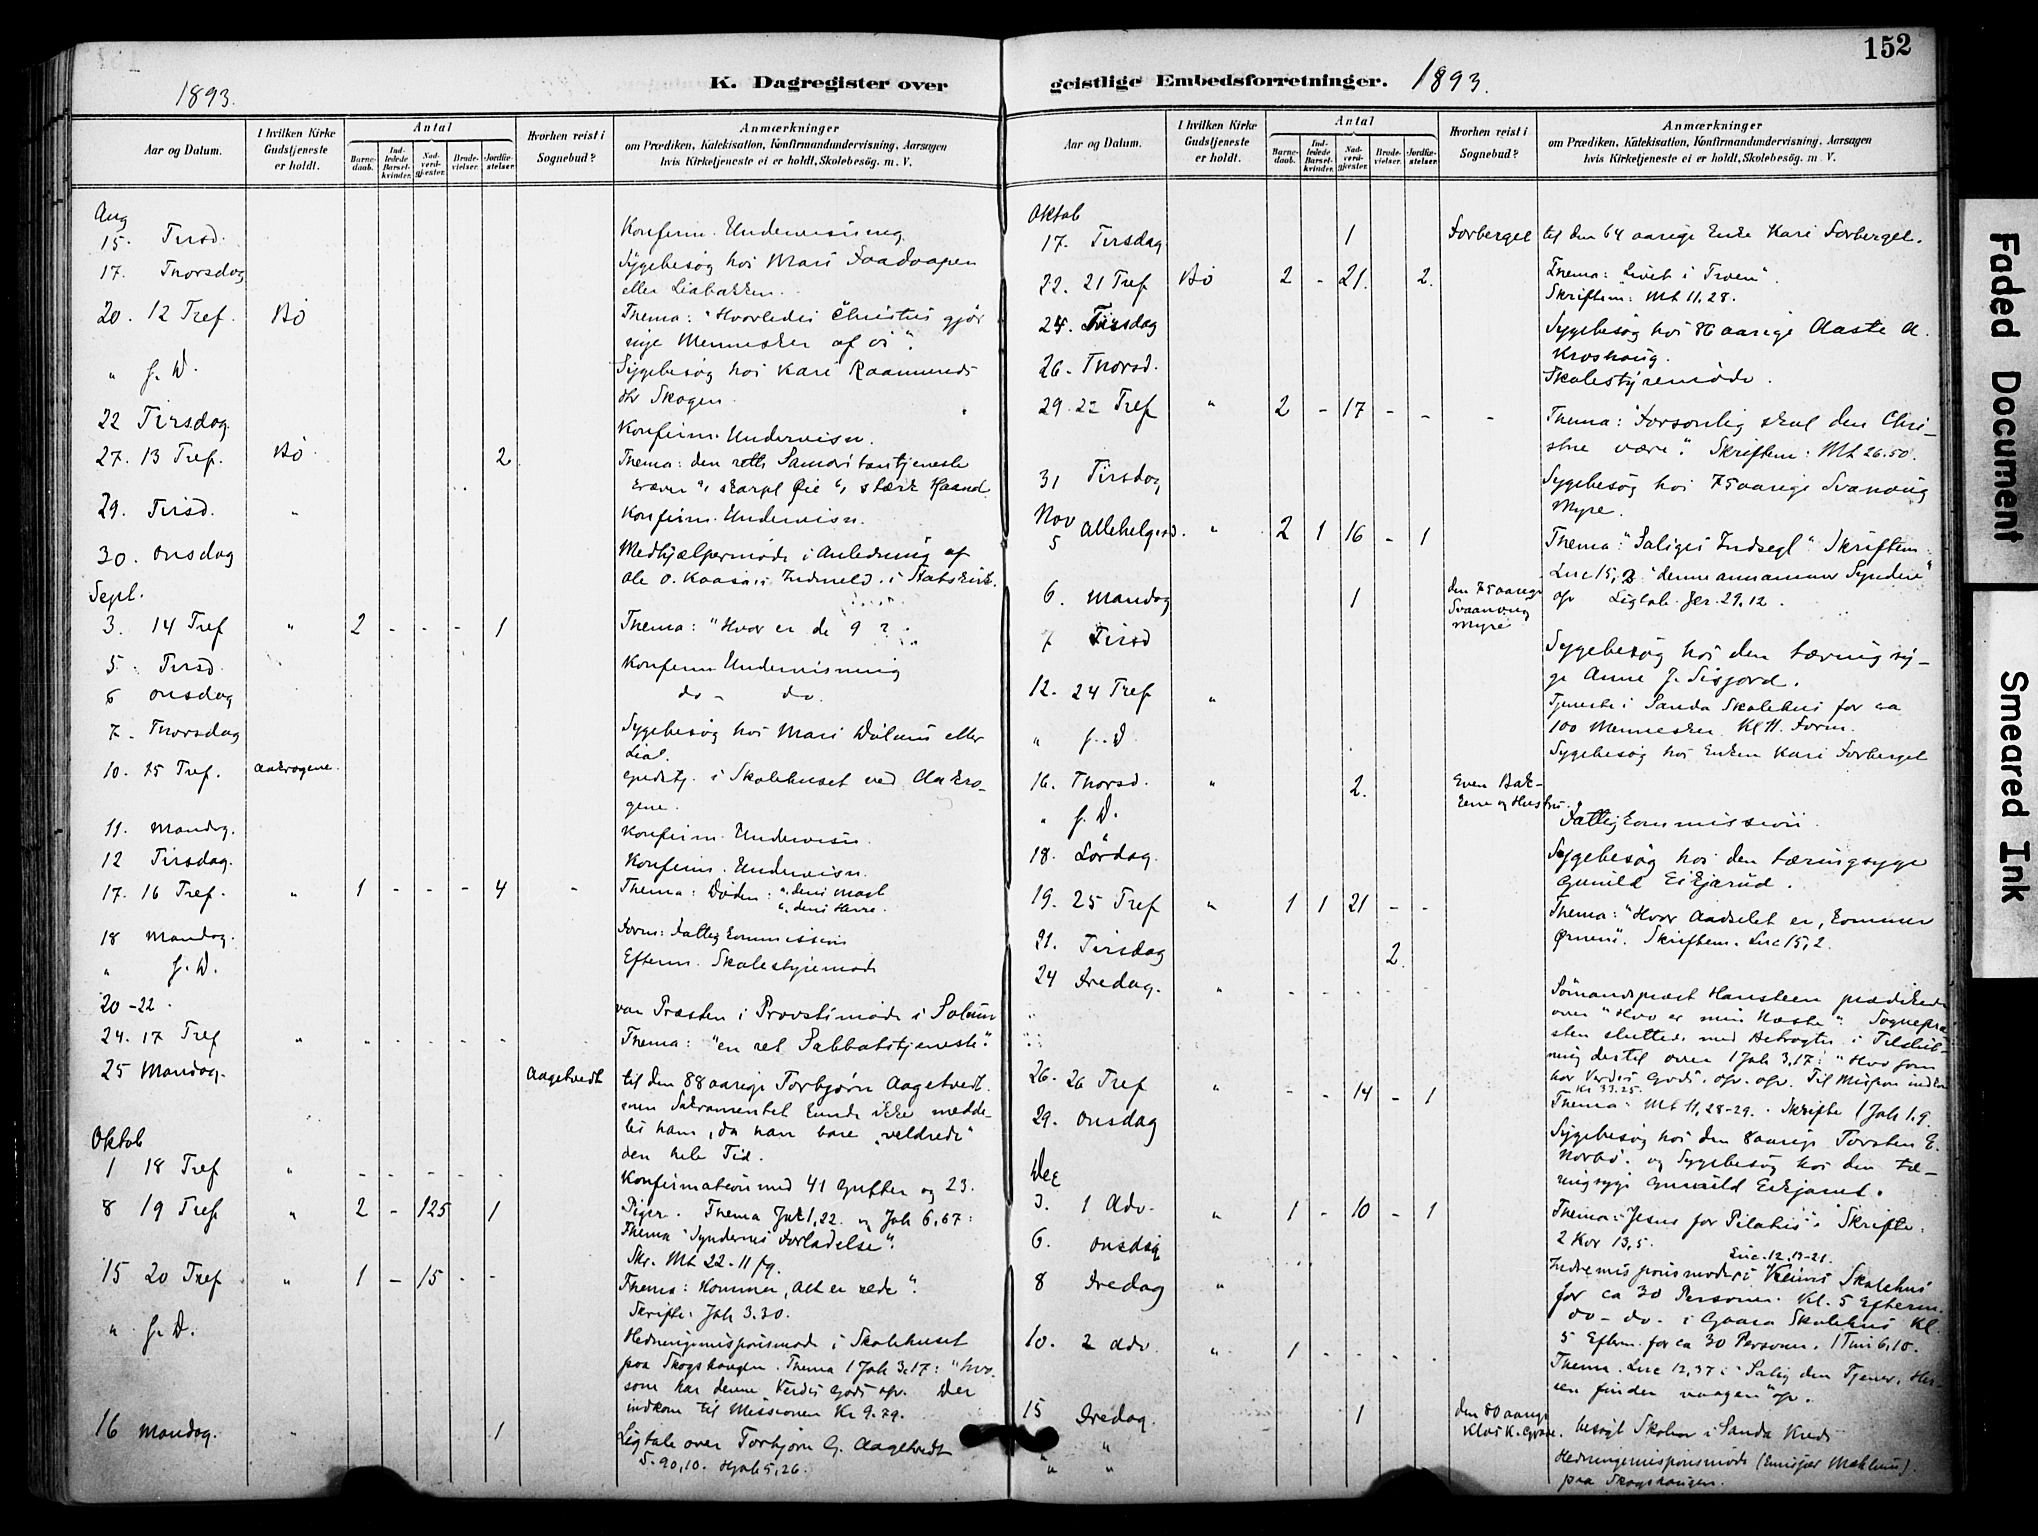 152
1893.
K. Dagregister over
geistlige Embedsforretninger. 1893.
Aar og Datum.
I hvilken Kirke Gudstjeneste er holdt.
Antal
Barnedaab.
Indledede Barselkvinder.
Nadverdgjester.
Brudevielser.
Jordfæstelser.
Hvorhen reist i Sognebud?
Anmærkninger
om Prædiken, Katekisation, Konfirmandundervisning, Aarsagen
hvis Kirketjeneste ei er holdt, Skolebesög. m. V.
Aug
15. Tirsd. Konfirm. Undervisning.
17. Thorsdag Sygebesøg hos Mari
eller Liabakken.
20. 12 Tref. Bø Thema: "Hvorledes Christus gjør
nye Mennesker af os".
" s. D. Sygebesøg hos Kari Raamunds
dtr Skogen.
22 Tirsdag Konfirm. Undervisn.
27. 13 Tref. Bø 2 Thema: den rette Samaritantjeneste
kræver", skarpt Øie ", stærk Haand.
29. Tirsd. " Konfirm. Undervisn.
30. onsdag Medhjælpermøde i Anledning af
Ole O. Kaasas Indmeld. i Statskirk.
Sept.
3. 14 Tref " 2 - - - 1 Thema: "Hvor er de 9?"
5. Tirsd. Konfirm Undervisning
6 onsdag do - do.
7. Thorsdag Sygebesøg hos Mari eller
Lia.
10. 15 Tref. Aakrogene. Gudstj. i Skolehuset ved Aakro-
gene.
11. Mandag. Konfirm. Undervisn.
12 Tirsdag. Konfirm. Undervisn.
17. 16 Tref. " 1 - - - 4 - Thema: Døden: ", dens Magt
", dens Herre.
18 Mandag. Form: Fattigkommission
" s. D. Efterm. Skolestyremøde
20-22. var Præsten i Provstimøde i Solum
24. 17 Tref " Thema: "en ret Sabbatstjeneste".
25 Mandag. Aagetvedt til den 88 aarige Torbjørn Aagetvedt.
men Sakramentet kunde ikke medde-
les ham, da han bare "veldrede"
den hele Tid.
Oktob
1 18 Tref " - - - - - Konfirmation med 41 Gutter og 23.
8 19 Tref " 2 - 125 1 Piger. Thema Jak 1,22. og Joh 6,67:
Thema "Syndernes Forladelse".
Skr. Mt 22-11 fg.
15 20 Tref " 1 - 15 - - Thema: Kommer, alt er rede".
Skrifte: Joh 3.30.
" s. D. Hedningemissionsmøde i Skolehuset
paa Skogshaugen. Thema 1 Joh 3,17: "hvo.
som har denne Verdes Gods ofv. Der
indkom til Missionen Kr 9.79.
16 Mandag. " 1 Ligtale over Torbjørn G. Aagetvedt
S. 90,10. Hjob 5,26.
Aar og Datum.
I hvilken Kirke Gudstjeneste er holdt.
Antal
Barnedaab.
Indledede Barselkvinder.
Nadverdgjester.
Brudevielser.
Jordfæstelser.
Hvorhen reist i Sognebud?
Anmærkninger
om Prædiken, Katekisation, Konfirmandundervisning, Aarsagen
hvis Kirketjeneste ei er holdt, Skolebesög. m. V.
Oktob
17. Tirsdag 1 Forberget til den 64 aarige Enke Kari Forberget.
22. 21 Tref Bø 2 - 21. 2. Thema: "Livet i Troen".
Skriftem: Mt 11,28.
24. Tirsdag Sygebesøg hos 86 aarige Aaste A.
Kroshaug.
26. Thorsd. Skolestyremøde.
29. 22 Tref " 2 - 17 - - - Thema: "Forsonlig skal den Chri-
stne være". Skriftem: Mt 26.50.
31 Tirsdag Sygebesøg hos 75 aarige Svanaug
Myre.
Nov
5 Allehelgesd. " 2 1 16 - 1 Thema: "Saliges Indsegl" Skriftem:
Luc 15,2 "denne annammer Syndere"
ofv Ligtale Jer. 29,12.
6. Mandag 1 den 75 aarige
Svanaug
Myre
7 Tirsd Sygebesøg hos den tæringsy-
ge Anne J. Sisjord.
12. 24 Tref " Tjeneste i Sanda Skolehus for ca
100 Mennesker. Kl 11. Form.
" s. D Sygebesøg hos Enken Kari Forberget
16. Thorsd. " 2. Even Bak-
kene og Hustru.
" s. D. Fattigkommission.
18. Lördag. Sygebesøg hos den tæringsyge
Gunild Eikjarud.
19. 25 Tref " 1 1 21 - - Thema: "Hvor Aadselet er, kommer
Ørnene". Skriftem. Luc 15,2.
21. Tirsdag 2.
24 Fredag. " - - - - - Sømandsprest Hansteen prædikede
over "Hvo er min Næste". Sognepræ-
sten sluttede med Betragtn. i Tilslut-
ning dertil over 1 Joh 3,17: "Hvo som
har Verdes Gods. ofv. ofv. Til Mission indkom
Kr 33.25.
26. 26 Tref " - - 14 - 1 Thema: Mt 11,28-29. Skrifte 1 Joh 1.9.
29. onsdag Sygebesøg hos den 8 aarige Torsten E.
Norbø. og Sygebesøg hos den tæ-
ringsyge Gunild Eikjarud.
Dec
3. 1 Adv. " 1 - 10 - 1 Thema: "Jesus for Pilatus". Skrifte:
2 Kor 13,5.
Luc. 12.13-21.
6. onsdag Indremissionsmøde i Skolehus
for ca 30 Personer. Kl. 5 Efterm.
8 Fredag " do - do. i Gaara Skolehus Kl.
5 Efterm. for ca 30 Personer. 1 Tim 6,10.
10. 2 Adv. " 1 - - - - Thema. Luc 12,37: "Salig den Tjener, Her-
ren finder vaagen" ofv.
15 Fredag. 1 den 80 aarige
Klas K. Grave. besøgt Skolen i Sanda Kreds
" " Hedningemissionsmøde (Emissær Mæhlum)
paa Skogshaugen.
Faded Document
Smeared Ink